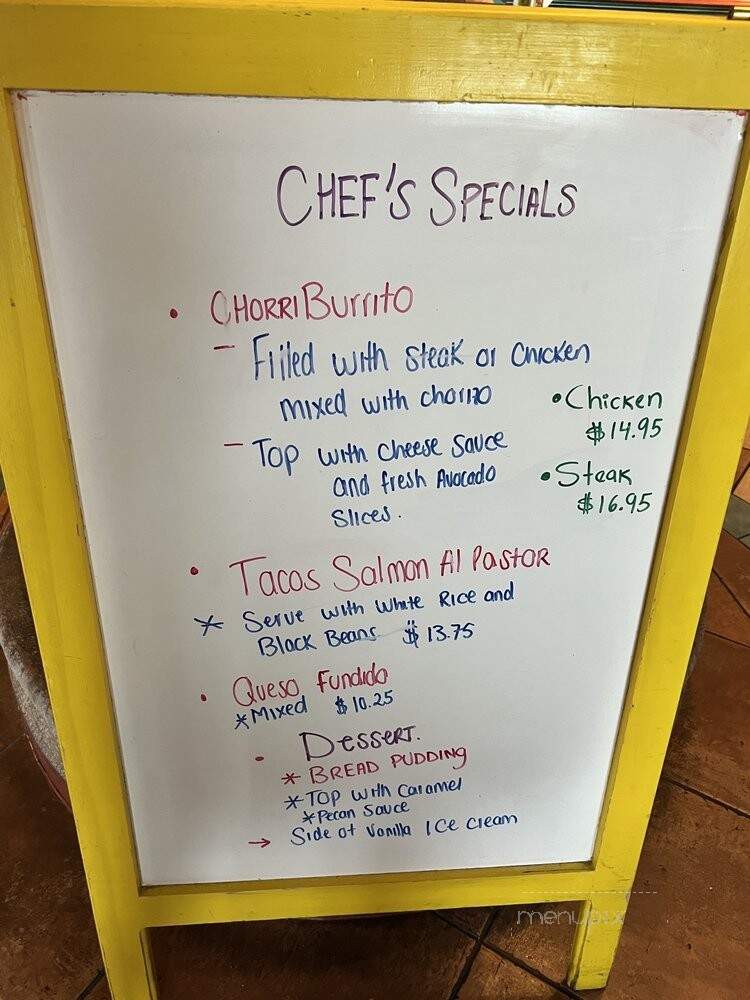 CHEF'S SPECIALS
• CHORRIBurrito
- Filled with steak or Chicken
mixed with chorizo
• Chicken
$14.95
- Top with cheese sauce
and fresh Avocado
slices.
• Steak
$16.95
• Tacos Salmon Al PastoR
* Serve with White Rice and
Black Beans $13.75
• Queso fundido
*Mixed $10.25
• Dessert.
* BREAD PUDDING
* TOP with caramel
* Pecan sauce
→ Side of Vanilla ICe cream
menupix